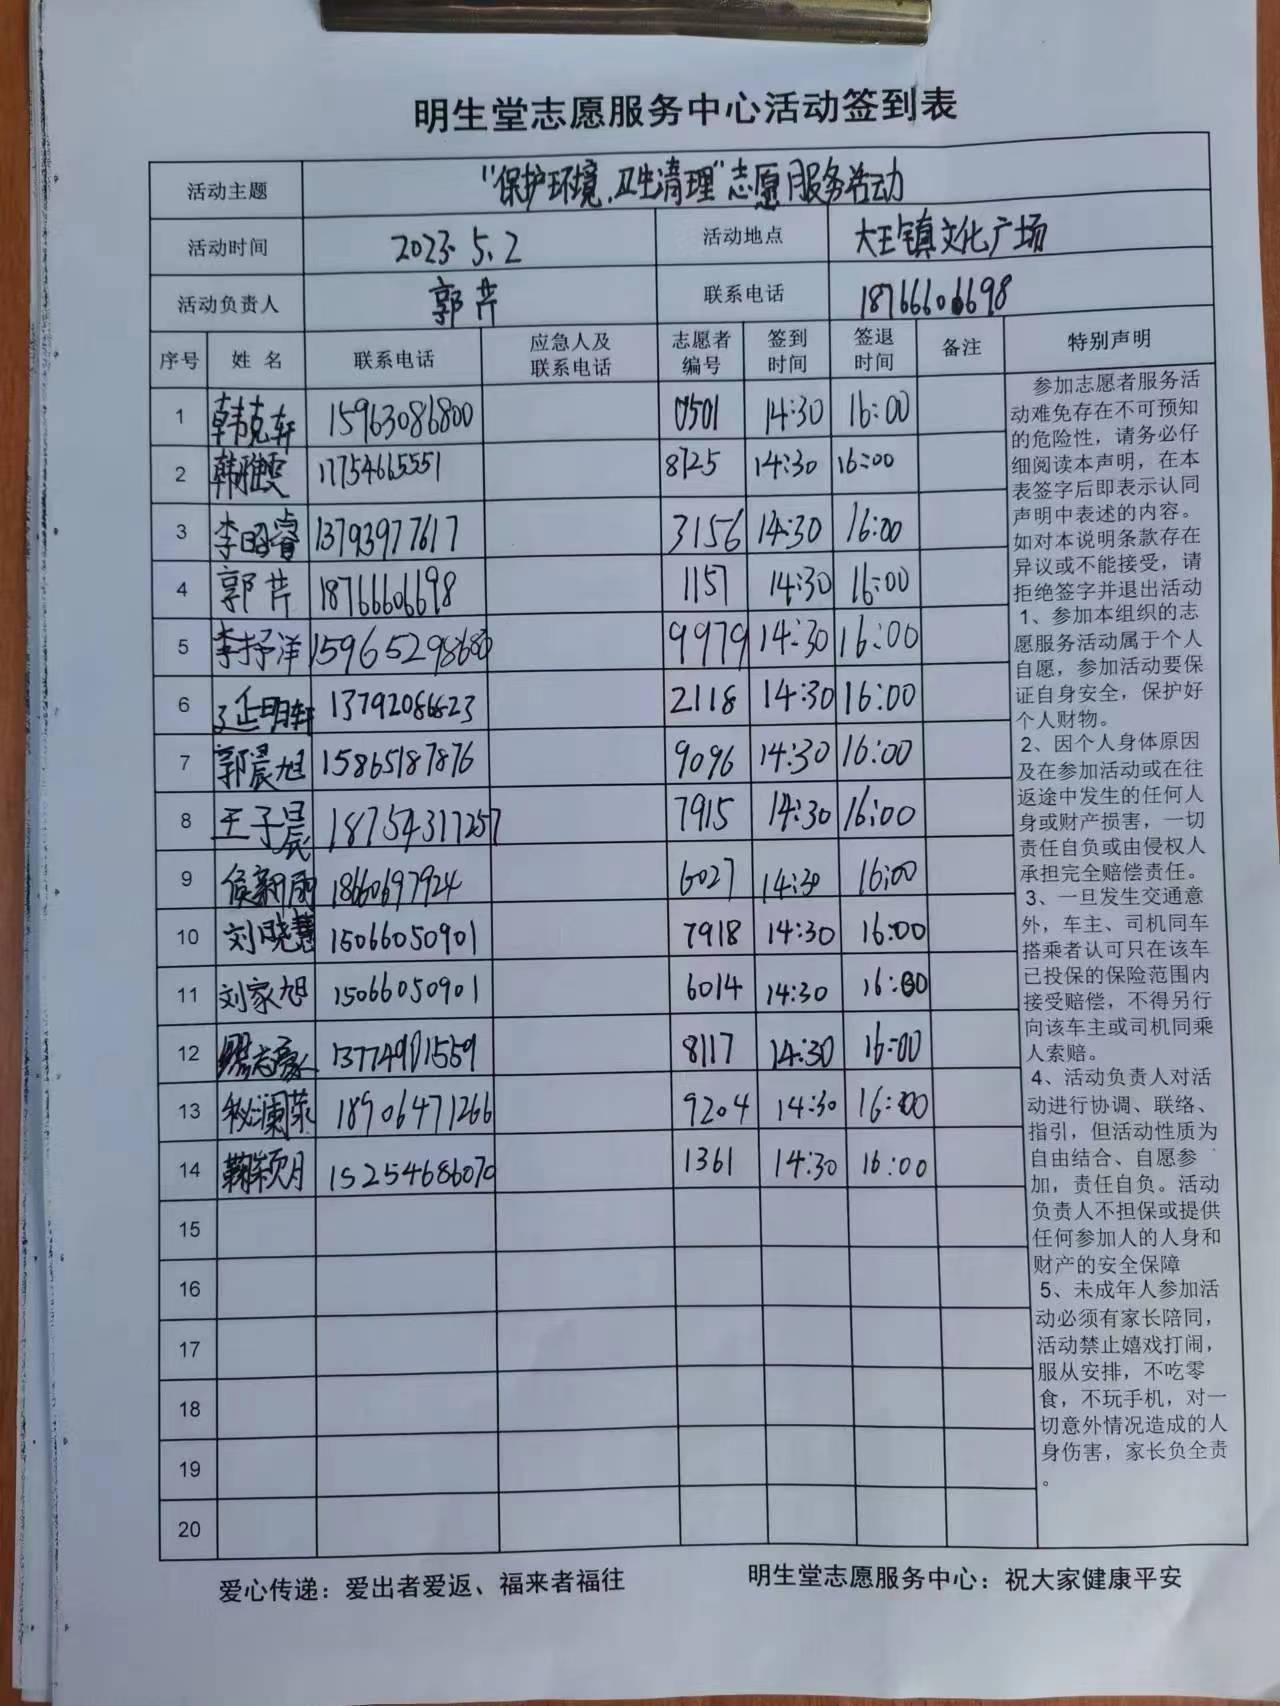 明生堂志愿服务中心活动签到表
活动主题 “保护环境、卫生清理”志愿服务活动
活动时间 2023.5.2 活动地点 大王镇文化广场
活动负责人 郭芹 联系电话 18766606698
序号 姓名 联系电话 应急人及联系电话 志愿者编号 签到时间 签退时间 备注 特别声明
1 韩克轩 15963086800 0501 14:30 16:00
2 韩雅雯 17754665551 8725 14:30 16:00
3 李昭睿 13793977617 3156 14:30 16:00
4 郭芹 18766606698 1157 14:30 16:00
5 李抒洋 9979 14:30 16:00
6 延明轩 13792086823 2118 14:30 16:00
7 郭晨旭 15865187876 9096 14:30 16:00
8 王子晨 18754317257 7915 14:30 16:00
9 侯新雨 18660697924 6027 14:30 16:00
10 刘晓慧 15066050901 7918 14:30 16:00
11 刘家旭 15066050901 6014 14:30 16:00
12 志豪 13774901559 8117 14:30 16:00
13 秘澜菉 18906471266 9204 14:30 16:00
14 鞠颖月 15254686070 1361 14:30 16:00
15
16
17
18
19
20
参加志愿者服务活
动难免存在不可预知
的危险性，请务必仔
细阅读本声明，在本
表签字后即表示认同
声明中表述的内容。
如对本说明条款存在
异议或不能接受，请
拒绝签字并退出活动
1、参加本组织的志
愿服务活动属于个人
自愿，参加活动要保
证自身安全，保护好
个人财物。
2、因个人身体原因
及在参加活动或在往
返途中发生的任何人
身或财产损害，一切
责任自负或由侵权人
承担完全赔偿责任。
3、一旦发生交通意
外，车主、司机同车
搭乘者认可只在该车
已投保的保险范围内
接受赔偿，不得另行
向该车主或司机同乘
人索赔。
4、活动负责人对活
动进行协调、联络、
指引，但活动性质为
自由结合、自愿参
加，责任自负。活动
负责人不担保或提供
任何参加人的人身和
财产的安全保障
5、未成年人参加活
动必须有家长陪同，
活动禁止嬉戏打闹，
服从安排，不吃零
食，不玩手机，对一
切意外情况造成的人
身伤害，家长负全责
。
爱心传递：爱出者爱返、福来者福往 明生堂志愿服务中心：祝大家健康平安